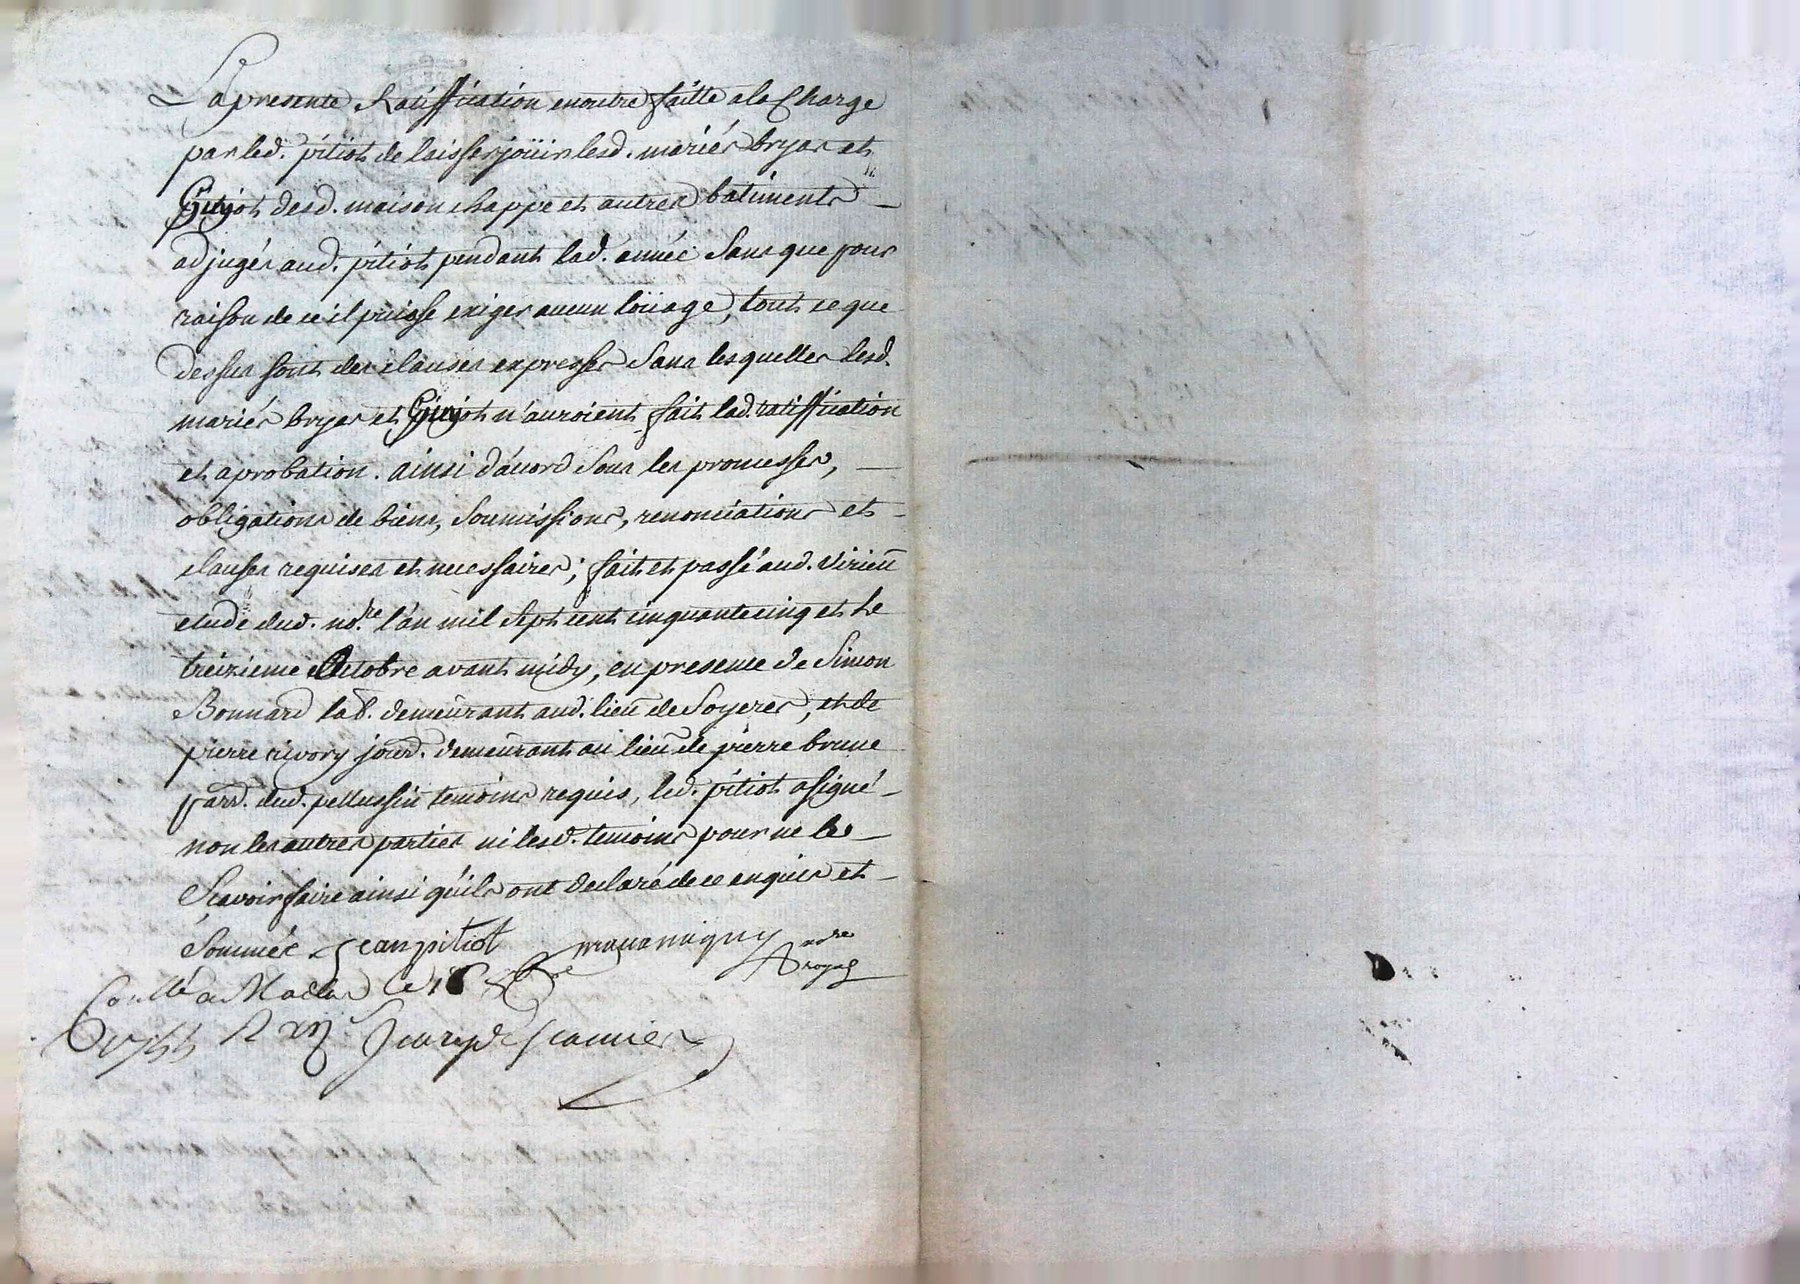 La presente Ratiffication enoutre faitte a la Charge
par led. pitiot de laisser joüir lesd. mariés bryas et
Guyot desd. maison chappe et autres batiments
adjugés aud. pitiot pendant lad. année Sans que pour
raison de ce il puisse exiger aucun loüage, tout ce que
dessus sont des clauses expresses Sans lesquelles lesd.
mariés bryas et Guyot n'auroient fait lad. ratiffication
et aprobation. ainsi d'acord Sous les promesses,
obligations de biens, Soumissions, renonciations et
clauses requises et necessaires; fait et passé aud. Virieu
etude dud. no.re l'an mil Sept cent cinquante cinq et le
treizieme Octobre avant midy, en presence de Simon
Bonnard lab. demeurant aud. lieu de Soyeres, et de
pierre rivory jour. demeurant au lieu de pierre brune
parr. dud. pellussin temoins requis, led. pitiot a signé
non les autres parties ni lesd. temoins pour ne le
Scavoir faire ainsi qu'ils ont declaré de ce enquis et
Sommés Jean pitiot no.re
royal
Conllé a Maclas le 18 8bre
1755 R